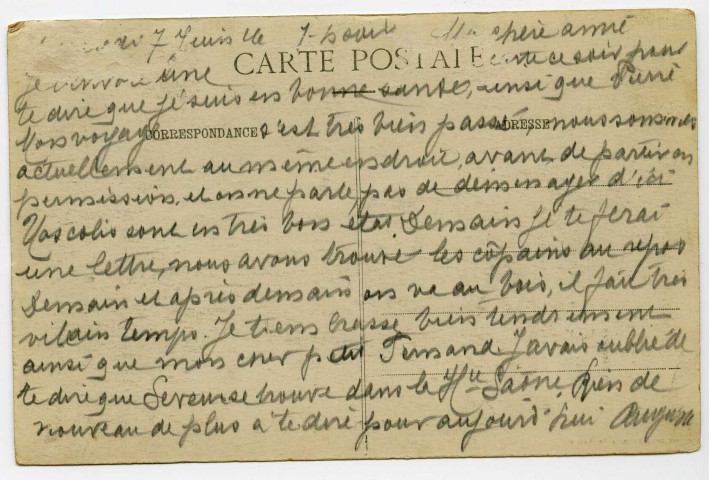 7 Ma chère aimé
CARTE POSTALE
Je t'envoie une carte ce soir pour
te dire que je suis en bonne santé, ainsi que Pierre
CORRESPONDANCE ADRESSE
Mon voyage s'est très bien passé, nous sommes
actuellement au même endroit, avant de partir en
permission, et on ne parle pas de déménager d'ici
Nos colis sont en très bon état. Demain je te ferai
une lettre, nous avons trouvé les copains au repos
Demain et après demain on va au bois, il fait très
vilain temps. Je t'embrasse bien tendrement
ainsi que mon cher petit Fernand. J'avais oublié de
te dire que se trouve dans la Hte Saône, Rien de
nouveau de plus à te dire pour aujourd'hui